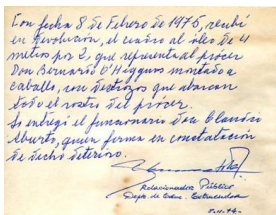 Con fecha 8 de Febrero de 1975, recibí
en devolución, el cuadro al óleo de 4
metros por 2, que representa al prócer
Don Bernardo O'Higgins montado a
caballo, con destrozos que abarcan
todo el rostro del prócer.
Se entregó el funcionario Don Claudio
Aburto, quien firma en constatación
de dicho deterioro.
Relacionador Público
Depto. de Educ. Extraescolar